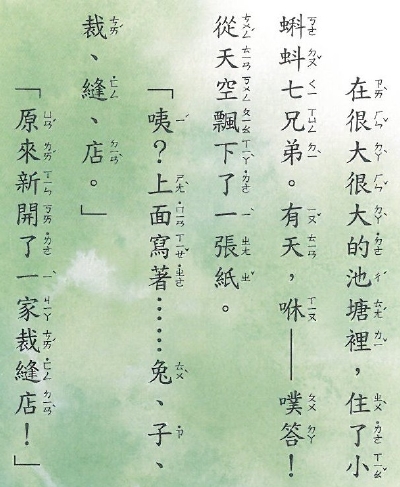 在很大很大的池塘裡，住了小
蝌蚪七兄弟。有天，咻——噗答！
從天空飄下了一張紙。
「咦？上面寫著……兔、子、
裁、縫、店。」
「原來新開了一家裁縫店！」